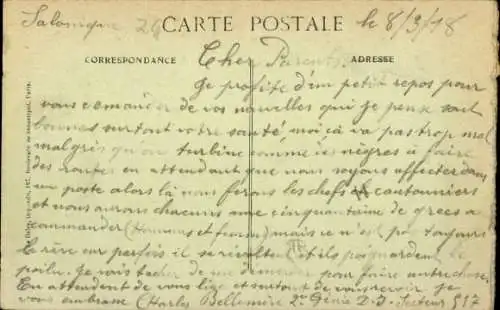 Salonique 29 CARTE POSTALE le 8/3/18
CORRESPONDANCE Cher Parents ADRESSE
Je profite d'un petit repos pour
vous de vos nouvelles que je pense sont
bonnes surtout votre santé, moi ça va pas trop mal
malgrès qu'on turbine comme des nègres à faire
des routes en attendant que nous soyons affecter dans
un poste alors là nous ferons les chefs cantonniers
et nous aurons chacuns une cinquantaine de grecs a
commander (Hommes et femmes) mais ce n'est pas toujours
le rêve car parfois il se révoltent et ils poignardent le
poilu. Je vous de me pour faire autre chose
En attendent de vous lire et surtout de vous revoir je
vous embrasse (Charles Bellemère 2e Génie D.I. Secteur 517